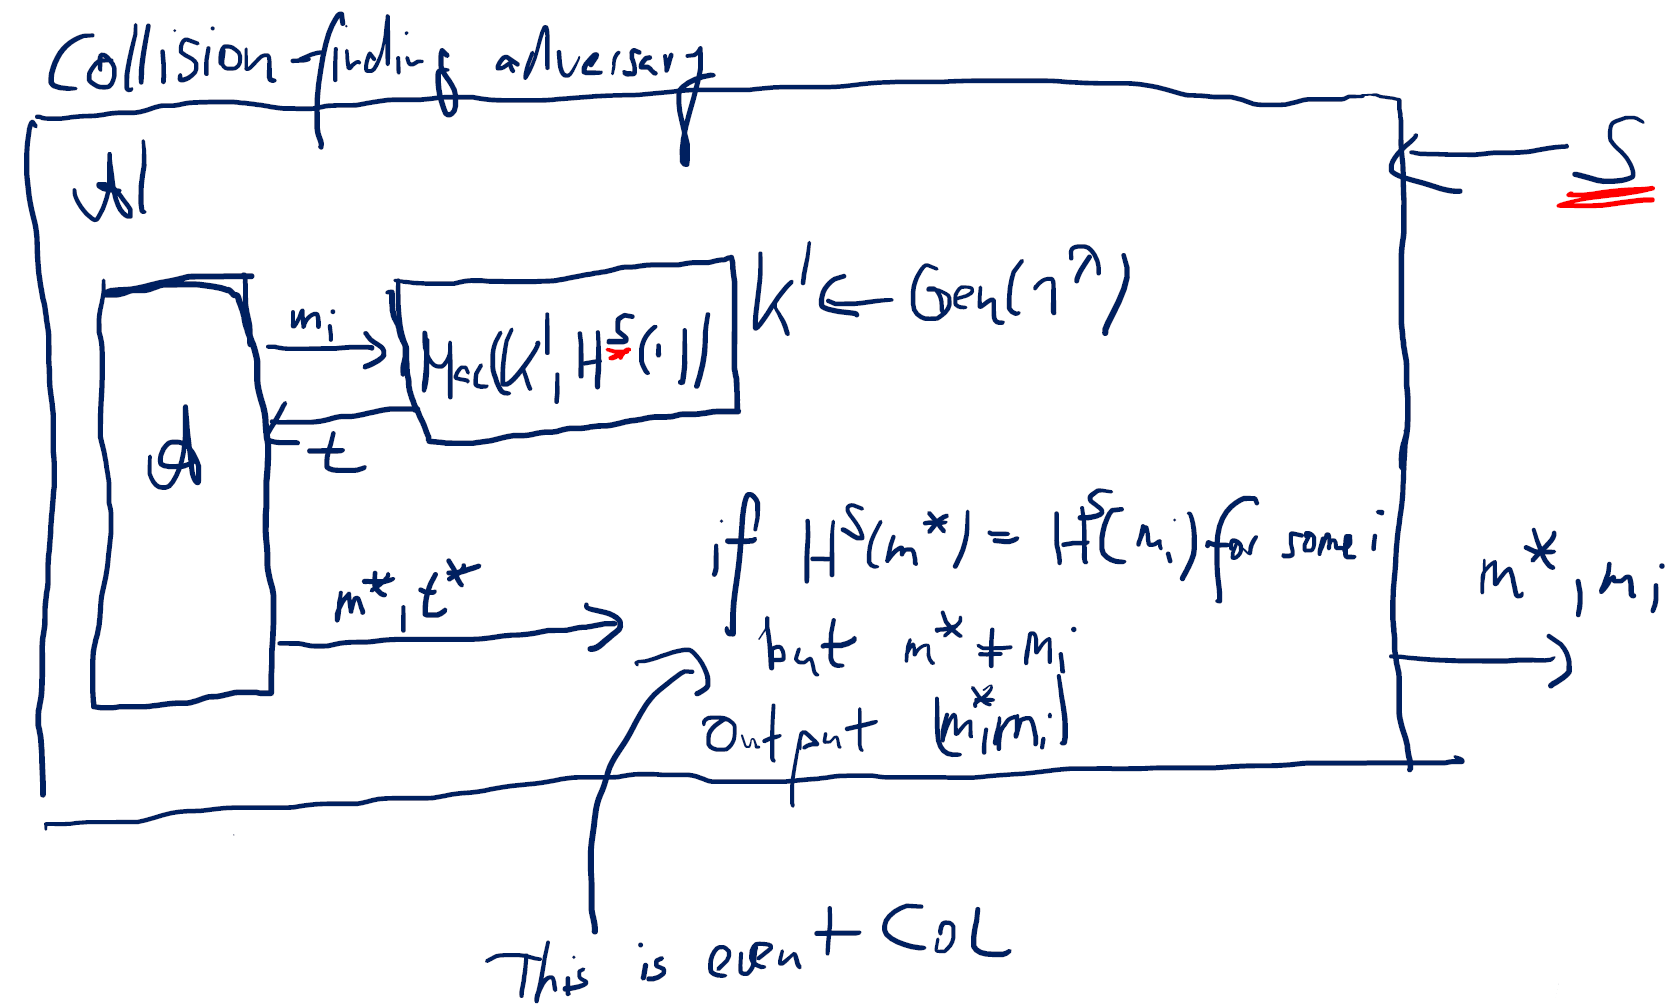 Collision-finding adversary
A'
S
m_i
Mac(K', H^S(.))
K' ← Gen(1^λ)
t
A
m*, t*
if H^S(m*) = H^S(m_i) for some i
but m* ≠ m_i
output (m*, m_i)
m*, m_i
This is event COL